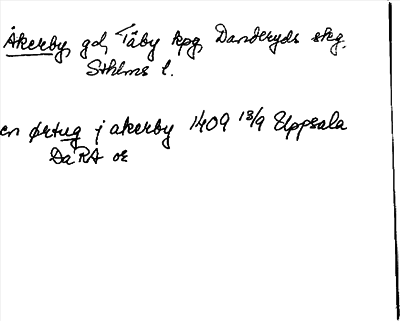 Åkerby, gd, Täby kpg, Danderyds skg.
Sthlms l.
en ørtug j akerby 1409 13/9 Uppsala
Da RA or